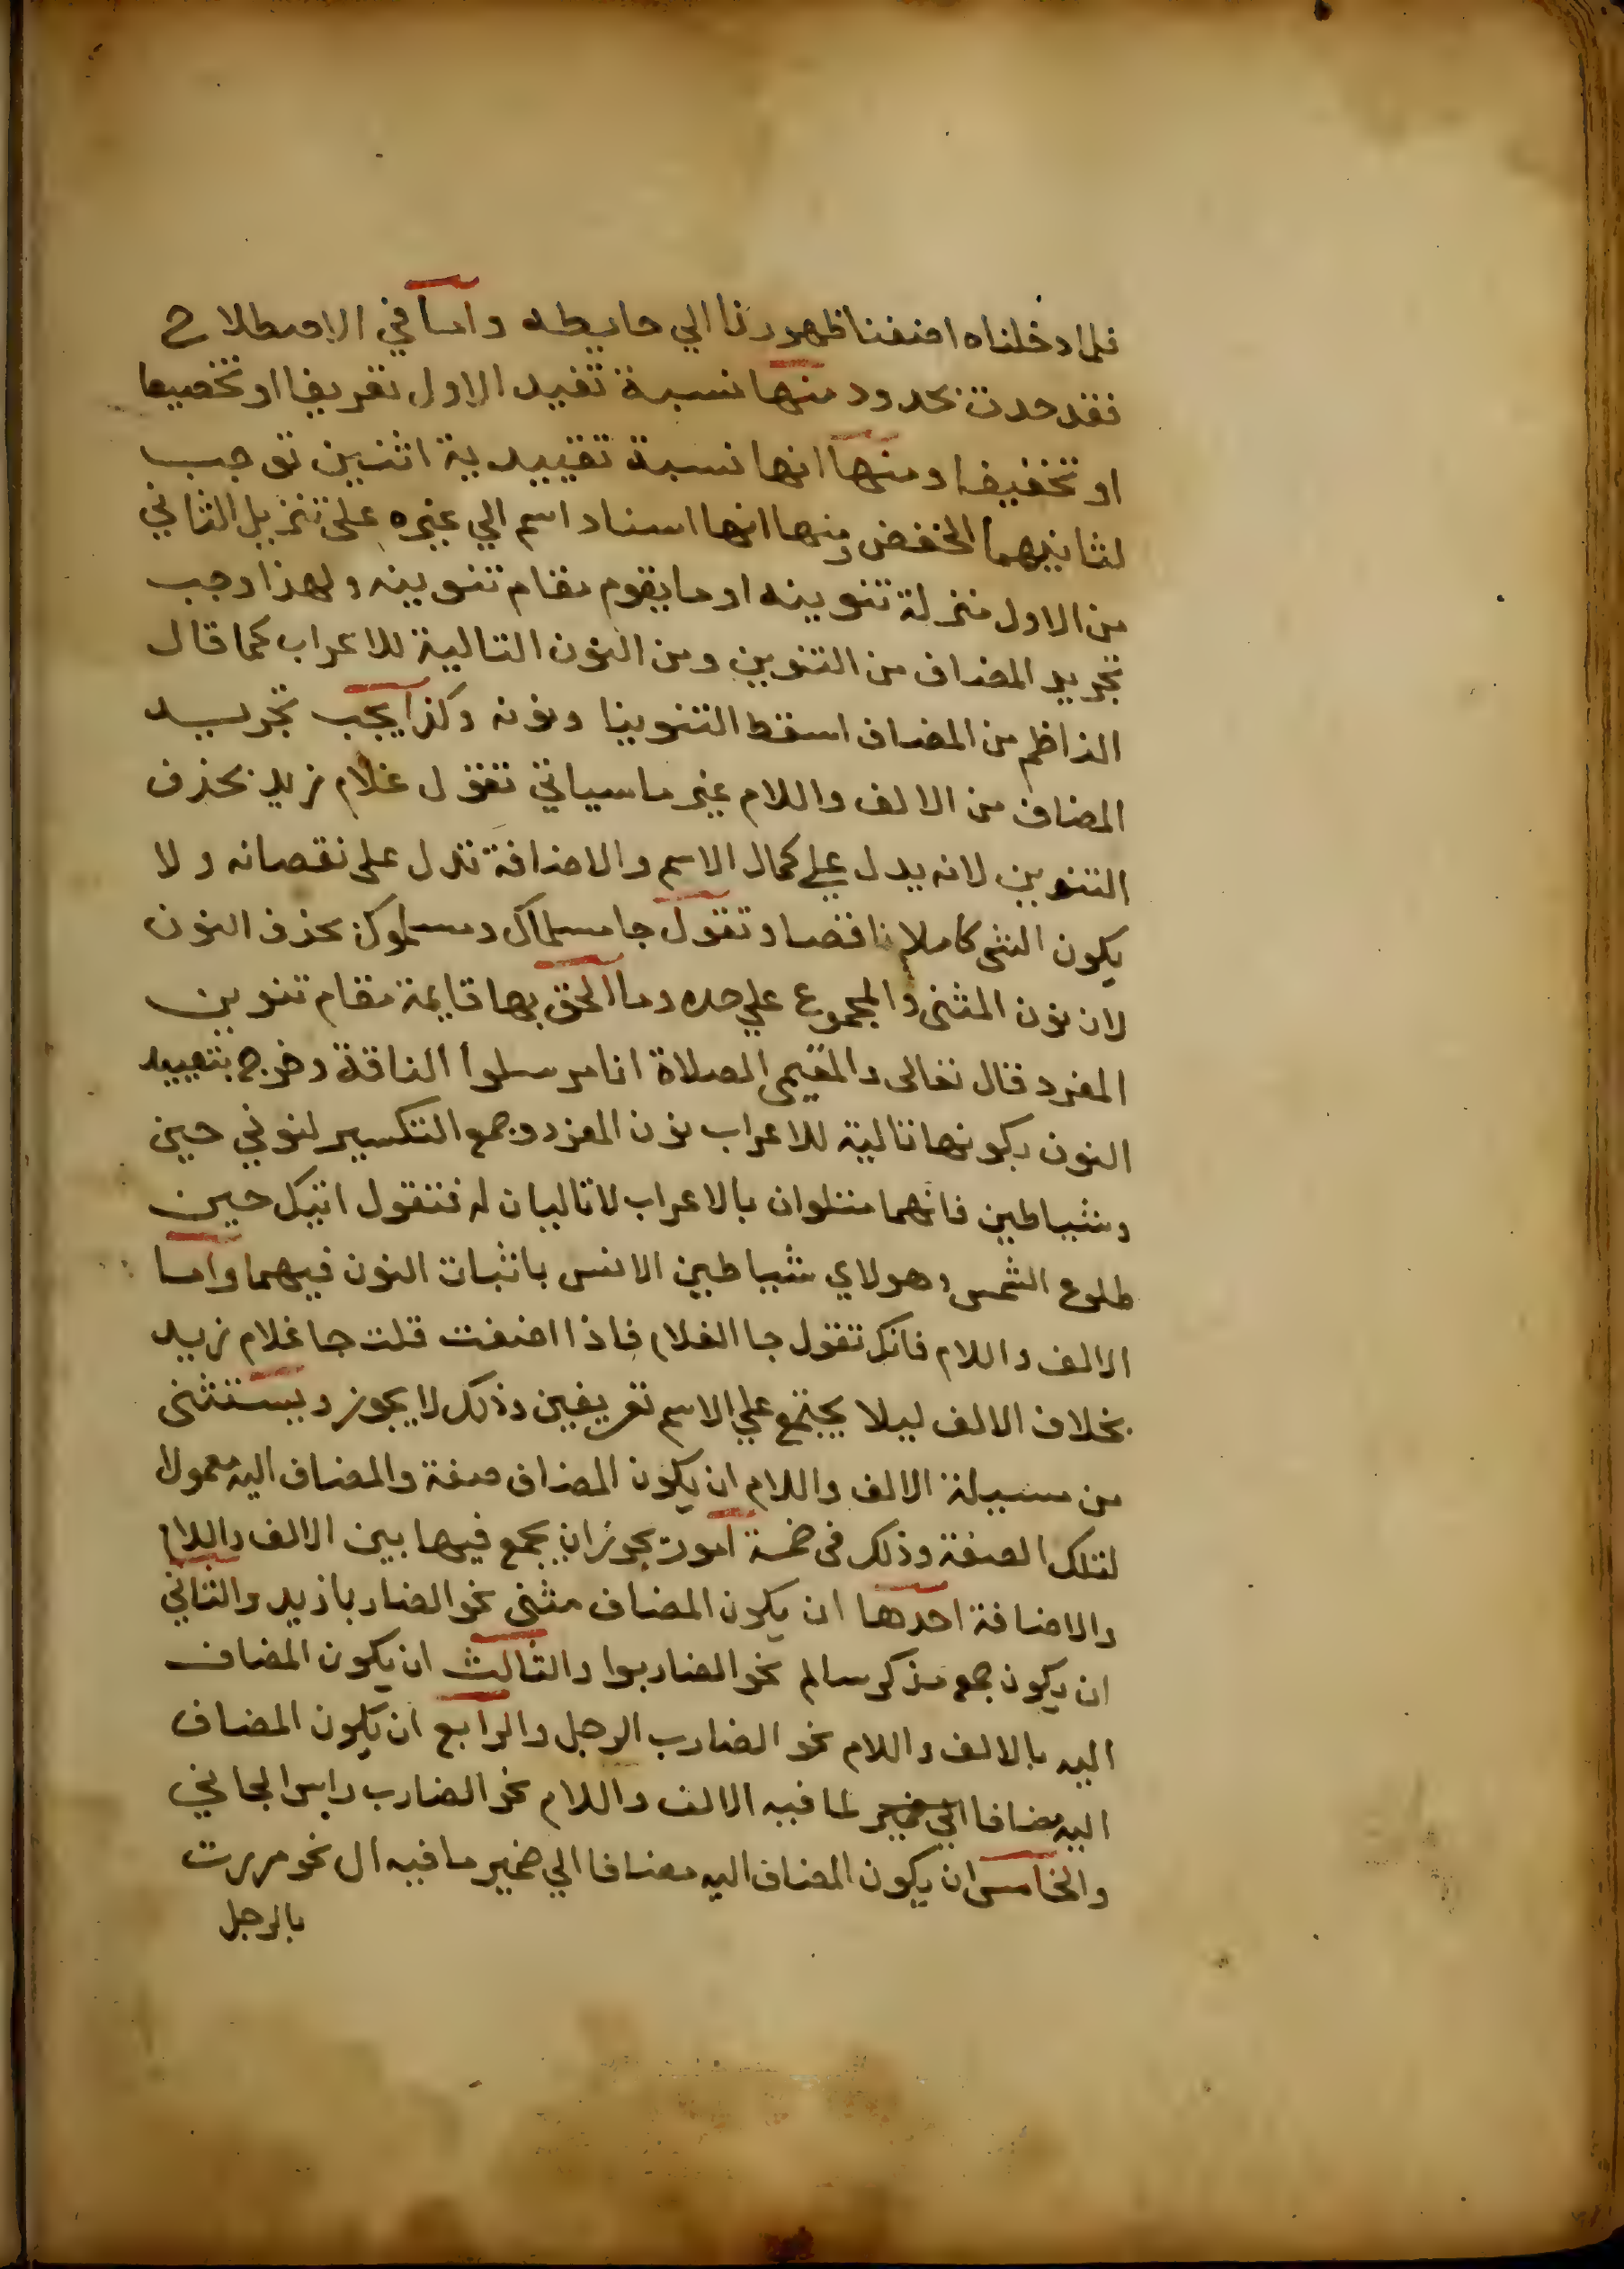 فلما دخلناه اضفنا ظهورنا الي حايطه واما في الاصطلاح
فقد حدت بحدود منها نسبة تفيد الاول تعريفا او تخصيصا
او تخفيفا ومنها انها نسبة تقييدية اثنين توجب
لثانيهما الخفض ومنها انها اسناد اسم الي غيره على تنزيل الثاني
من الاول منزلة تنوينه او ما يقوم مقام تنوينه ولهذا وجب
تجريد المضاف من التنوين ومن النون التالية للاعراب كما قال
الناظم من المضاف اسقط التنوينا ونونه وكذا يجب تجريد
المضاف من الالف واللام غير ما سياتي تقول غلام زيد بحذف
التنوين لانه يدل علي كمال الاسم والاضافة تدل على نقصانه ولا
يكون الشي كاملا ناقصا وتقول جا مسلماك ومسلموك بحذف النون
لان نون المثنى والمجموع علي حده وما الحق بها قايمة مقام تنوين
المفرد قال تعالى والمقيمي الصلاة انا مرسلوا الناقة وخرج بتقييد
النون بكونها تالية للاعراب نون المفرد وجمع التكسير لنوني حين
وشياطين فانهما متلوان بالاعراب لا تاليان له فتقول اتيك حين
طلوع الشمس وهولاي شياطين الانس باثبات النون فيهما واما
الالف واللام فانك تقول جا الغلام فاذا اضفت قلت جا غلام زيد
بخلاف الالف ليلا يجتمع علي الاسم تعريفين وذلك لا يجوز ويستثنى
من مسيلة الالف واللام ان يكون المضاف صفة والمضاف اليه معمولا
لتلك الصفة وذلك فى خمسة امور يجوز ان يجمع فيها بين الالف واللام
والاضافة احدها ان يكون المضاف مثنى نحو الضاربا زيد والثاني
ان يكون جمع مذكر سالم نحو الضاربوا والثالث ان يكون المضاف
اليه بالالف واللام نحو الضارب الرجل والرابع ان يكون المضاف
اليه مضافا الي ضمير لما فيه الالف واللام نحو الضارب راس الجاني
والخامس ان يكون المضاف اليه مضافا الي ضمير ما فيه ال نحو مررت
بالرجل